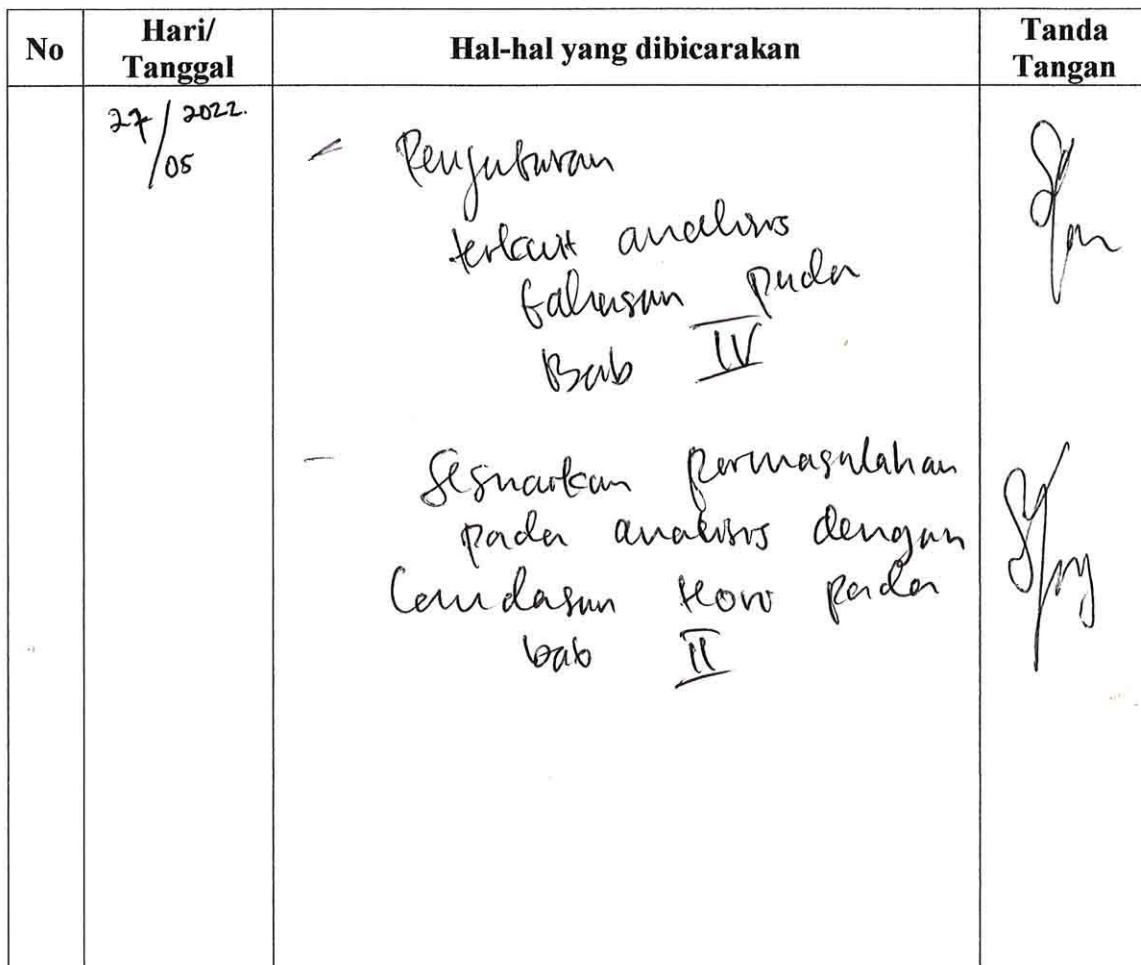 No
Hari/
Tanggal
Hal-hal yang dibicarakan
Tanda
Tangan
27/05 2022.
-
terkait analisis
bahasan pada
Bab IV
- Sesuaikan permasalahan
pada analisis dengan
Landasan teori pada
bab II